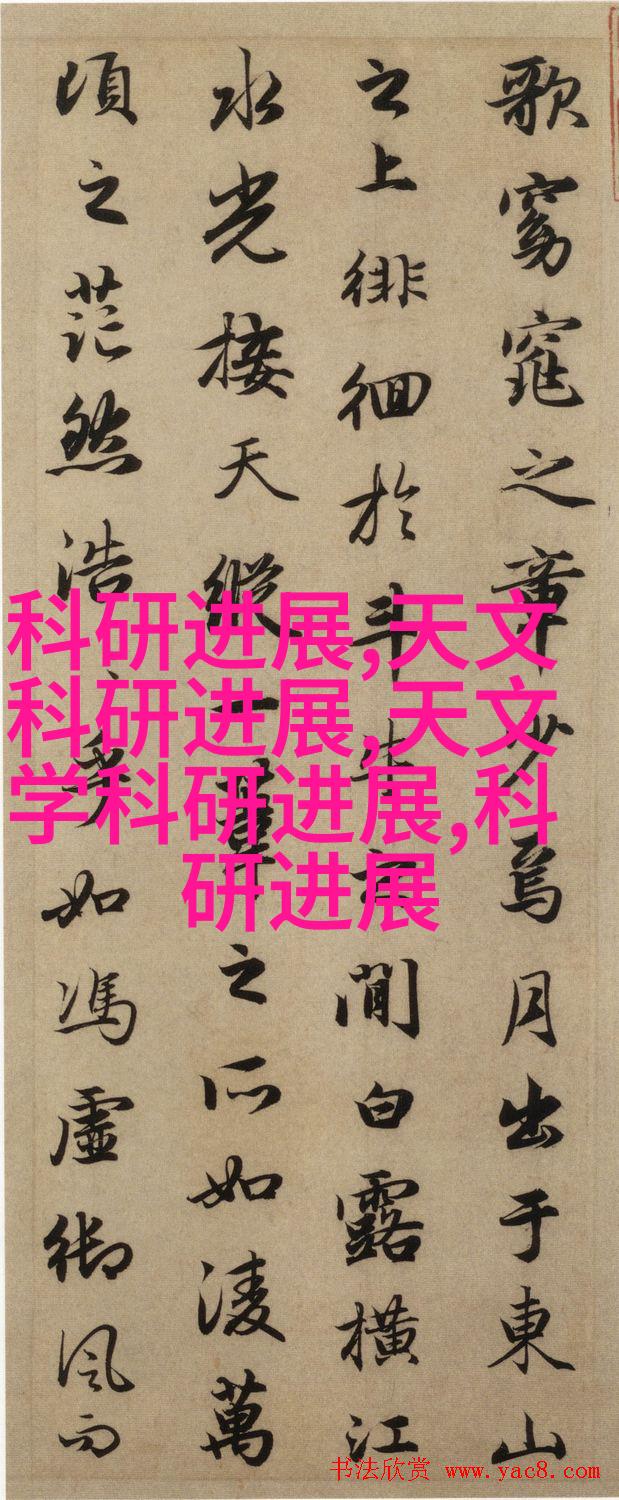 歌窈窕之章少焉月出于東山
之上徘徊於斗牛之間白露橫江
水光接天縱一葦之所如淩萬
頃之茫然浩々乎如馮虛御風而
科研进展,天文
科研进展,天文
学科研进展,科
研进展
书法欣赏 www.yac8.com